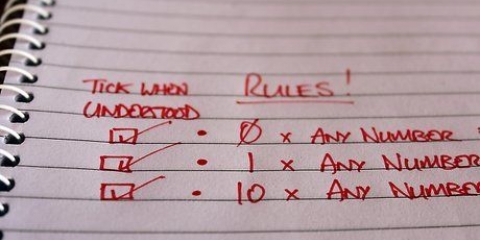 TICK WHEN RULES!
UNDERSTOOD
0 x ANY NUMBER
1 x ANY NUMBER
10 x ANY NUMBER